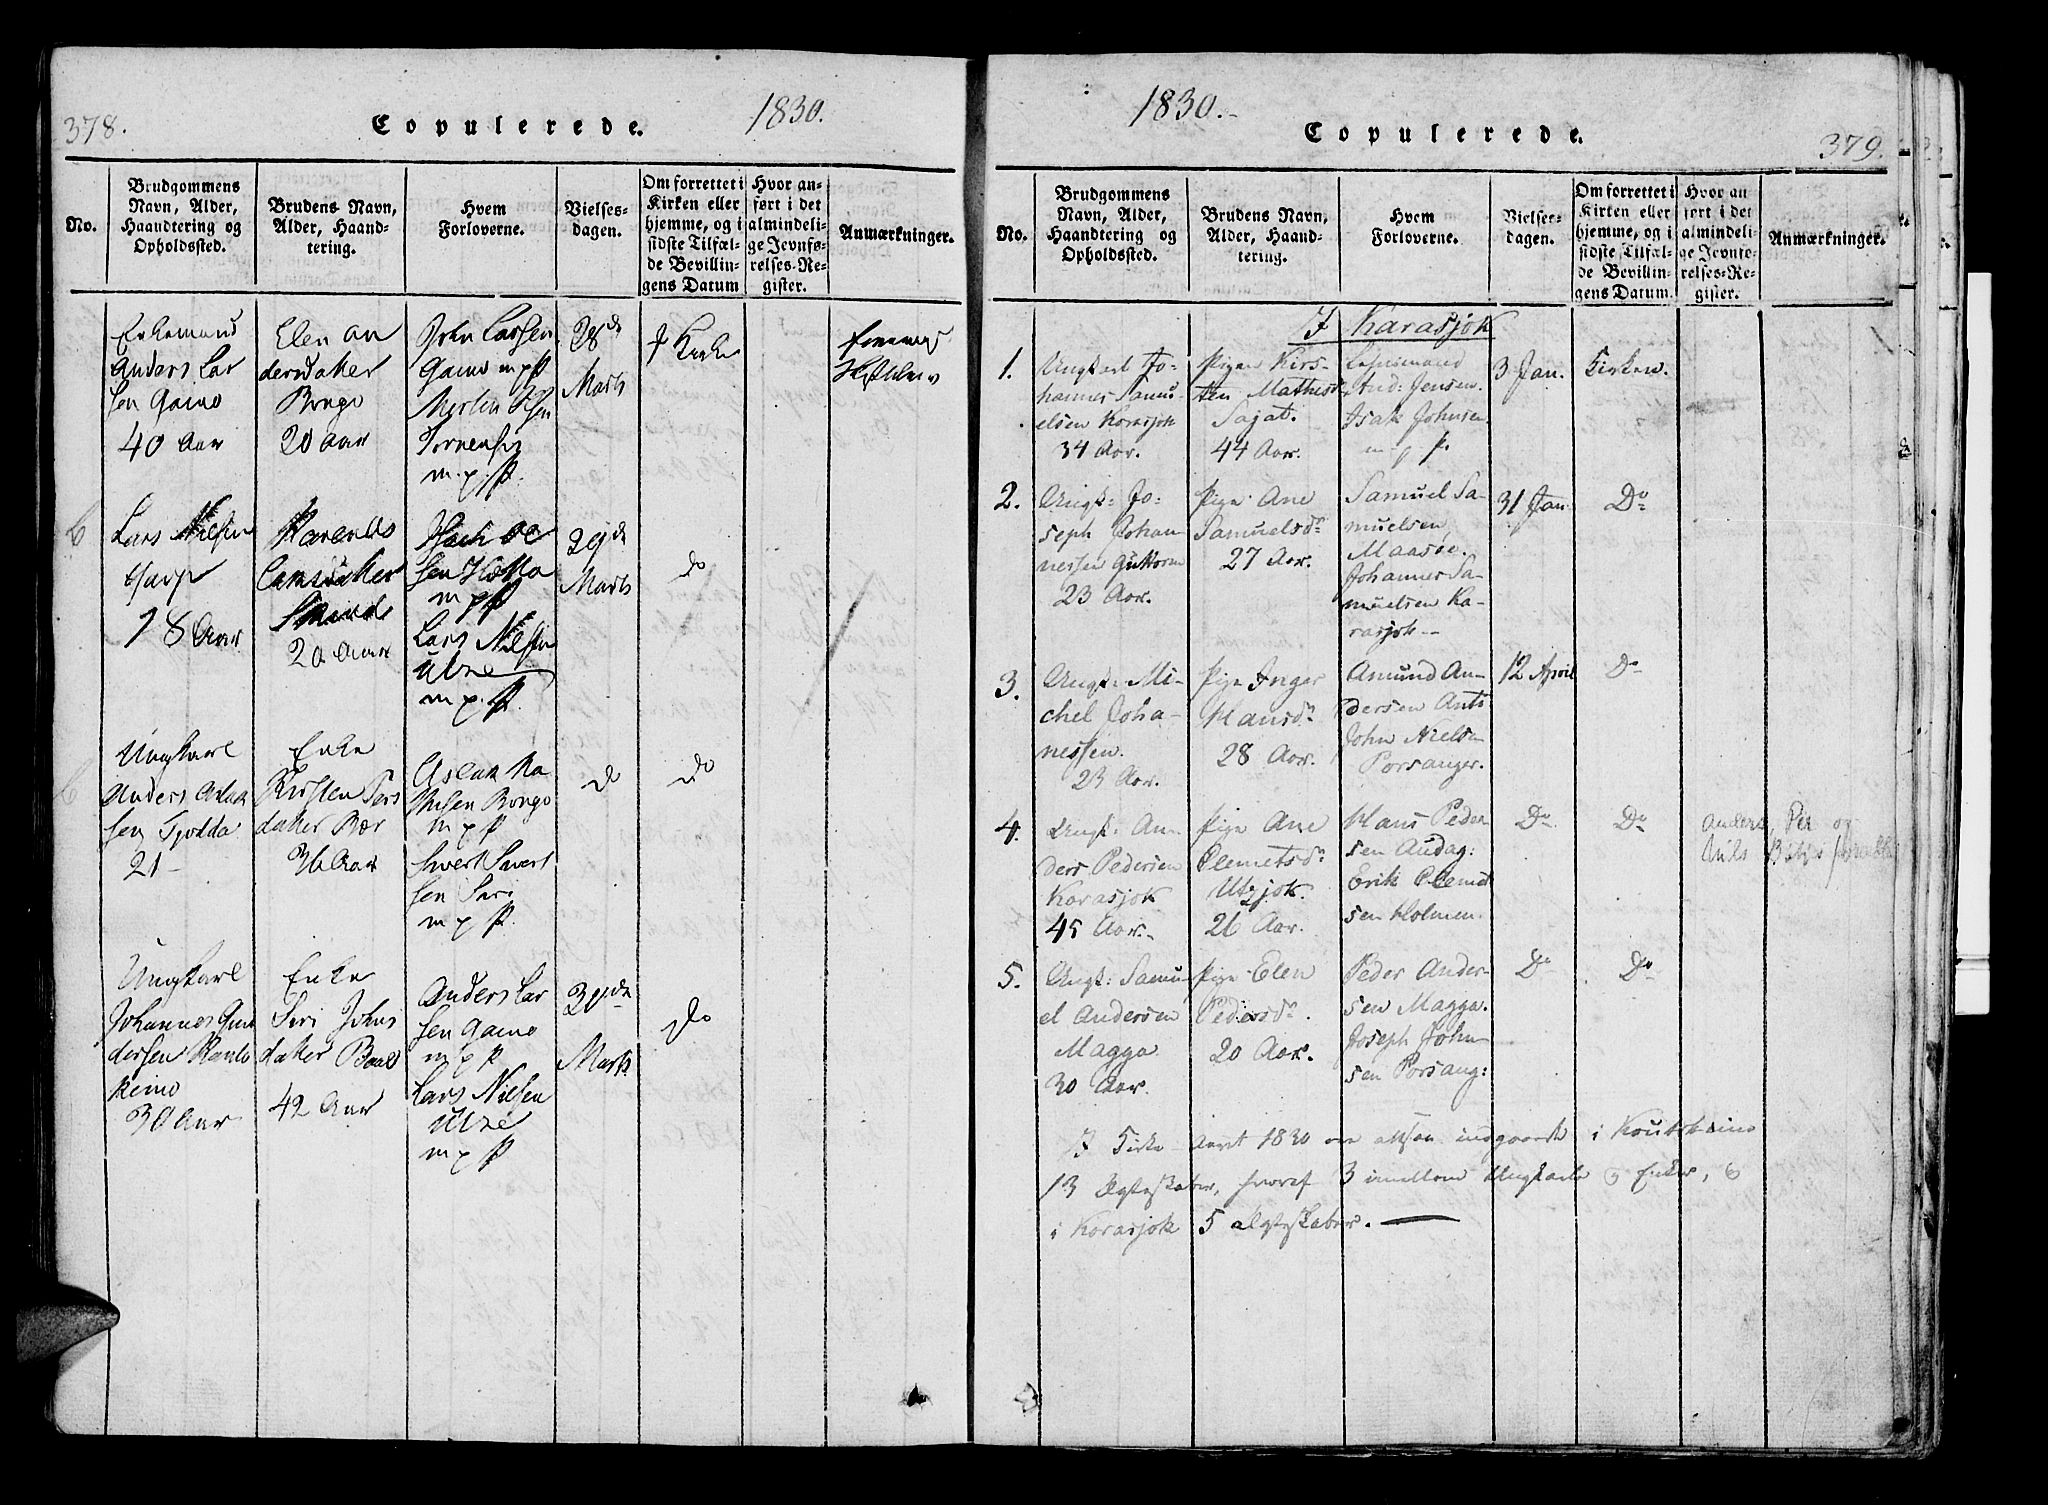 378. Copulerede. 1830.
No.
Brudgommens Navn, Alder, Haandtering og Opholdssted.
Brudens Navn, Alder, Haandtering.
Hvem Forloverne.
Vielsesdagen.
Om forrettet i Kirken eller hjemme, og i sidste Tilfælde Bevillingens Datum
Hvor anført i det almindelige Jevnførelses-Register.
Anmærkninger.
Enkemand
Anders Lar
sen Gaino
40 Aar
Elen An
dersdatter
Bongo
20 Aar
John Larsen
Gaino mpp
Morten
m.p.p.
28de
Marts
I Kirke
Lars Nielsen
18 Aar
20 Aar
sen Hætta
mpp
Lars Nilsen
Utze
m.p.p.
29de
Marts
Do
Ungkarl
Anders Aslak
sen
21 -
Enke
Kirsten Pers
datter Bær
36 Aar
Aslak Ma
thisen Bongo
m p p
Sivert Sivert
sen Siri
m p p.
Do
Do
Ungkarl
Johannes
dersen Kauto
keino
30 Aar
Enke
Siri Johns
datter
42 Aar
Anders Lar
sen Gaino
m p p
Lars Nilsen
Utze
m p p
30de
Marts
Do
1830. Copulerede. 379.
No.
Brudgommens Navn, Alder, Haandtering og Opholdssted.
Brudens Navn, Alder, Haandtering.
Hvem Forloverne.
Vielsesdagen.
Om forrettet i Kirken eller hjemme, og i sidste Tilfælde Bevillingens Datum.
Hvor anført i det almindelige Jevnførelses-Register.
Anmærkninger.
I Karasjok
1.
Ungkarl Jo-
hannes Samu-
elsen Korasjok
34 Aar.
Pigen Kirs-
ten Mathisd.
Sajat.
44 Aar.
Lensmand
And: Jensen.
Isak Johnsen.
m p p.
3 Jan.
Kirken.
2.
Ungk: Jo:
seph Johan
nessen Guttorm
23 Aar.
Pige Ane
Samuelsdr
27 Aar.
Samuel Sa-
muelsen,
Maasøe.
Johannes Sa-
muelsen Ka-
rasjok
31 Jan.
Do
3.
Ungk: Mi-
chel Joha-
nessen.
23 Aar.
Pige Inger
Hansdr
28 Aar.
Amund An-
dersen Anti
John Nielsen
Porsanger.
12 April
Do
4.
Ungk: An-
ders Pedersen
Korasjok
45 Aar.
Pige Ane
Clemetsdr
Utzjok.
26 Aar.
Hans Peder
sen Audag:
Erik Clemet
sen Holmen.
Do
Do
Anders, Per og
Nils
5.
Ungk: Samu-
el Andersen
Magga
30 Aar.
Pige Elen
Pedersdr.
20 Aar.
Peder Ander-
sen Magga.
Joseph John-
sen Porsang:
Do
Do
I Kirke-Aaret 1830 ere altsaa indgaaede i Koutokeino
13 Ægteskaber, hvoraf 3 imellem Ungkarle og Enker, og
i Korasjok 5 Ægteskaber.